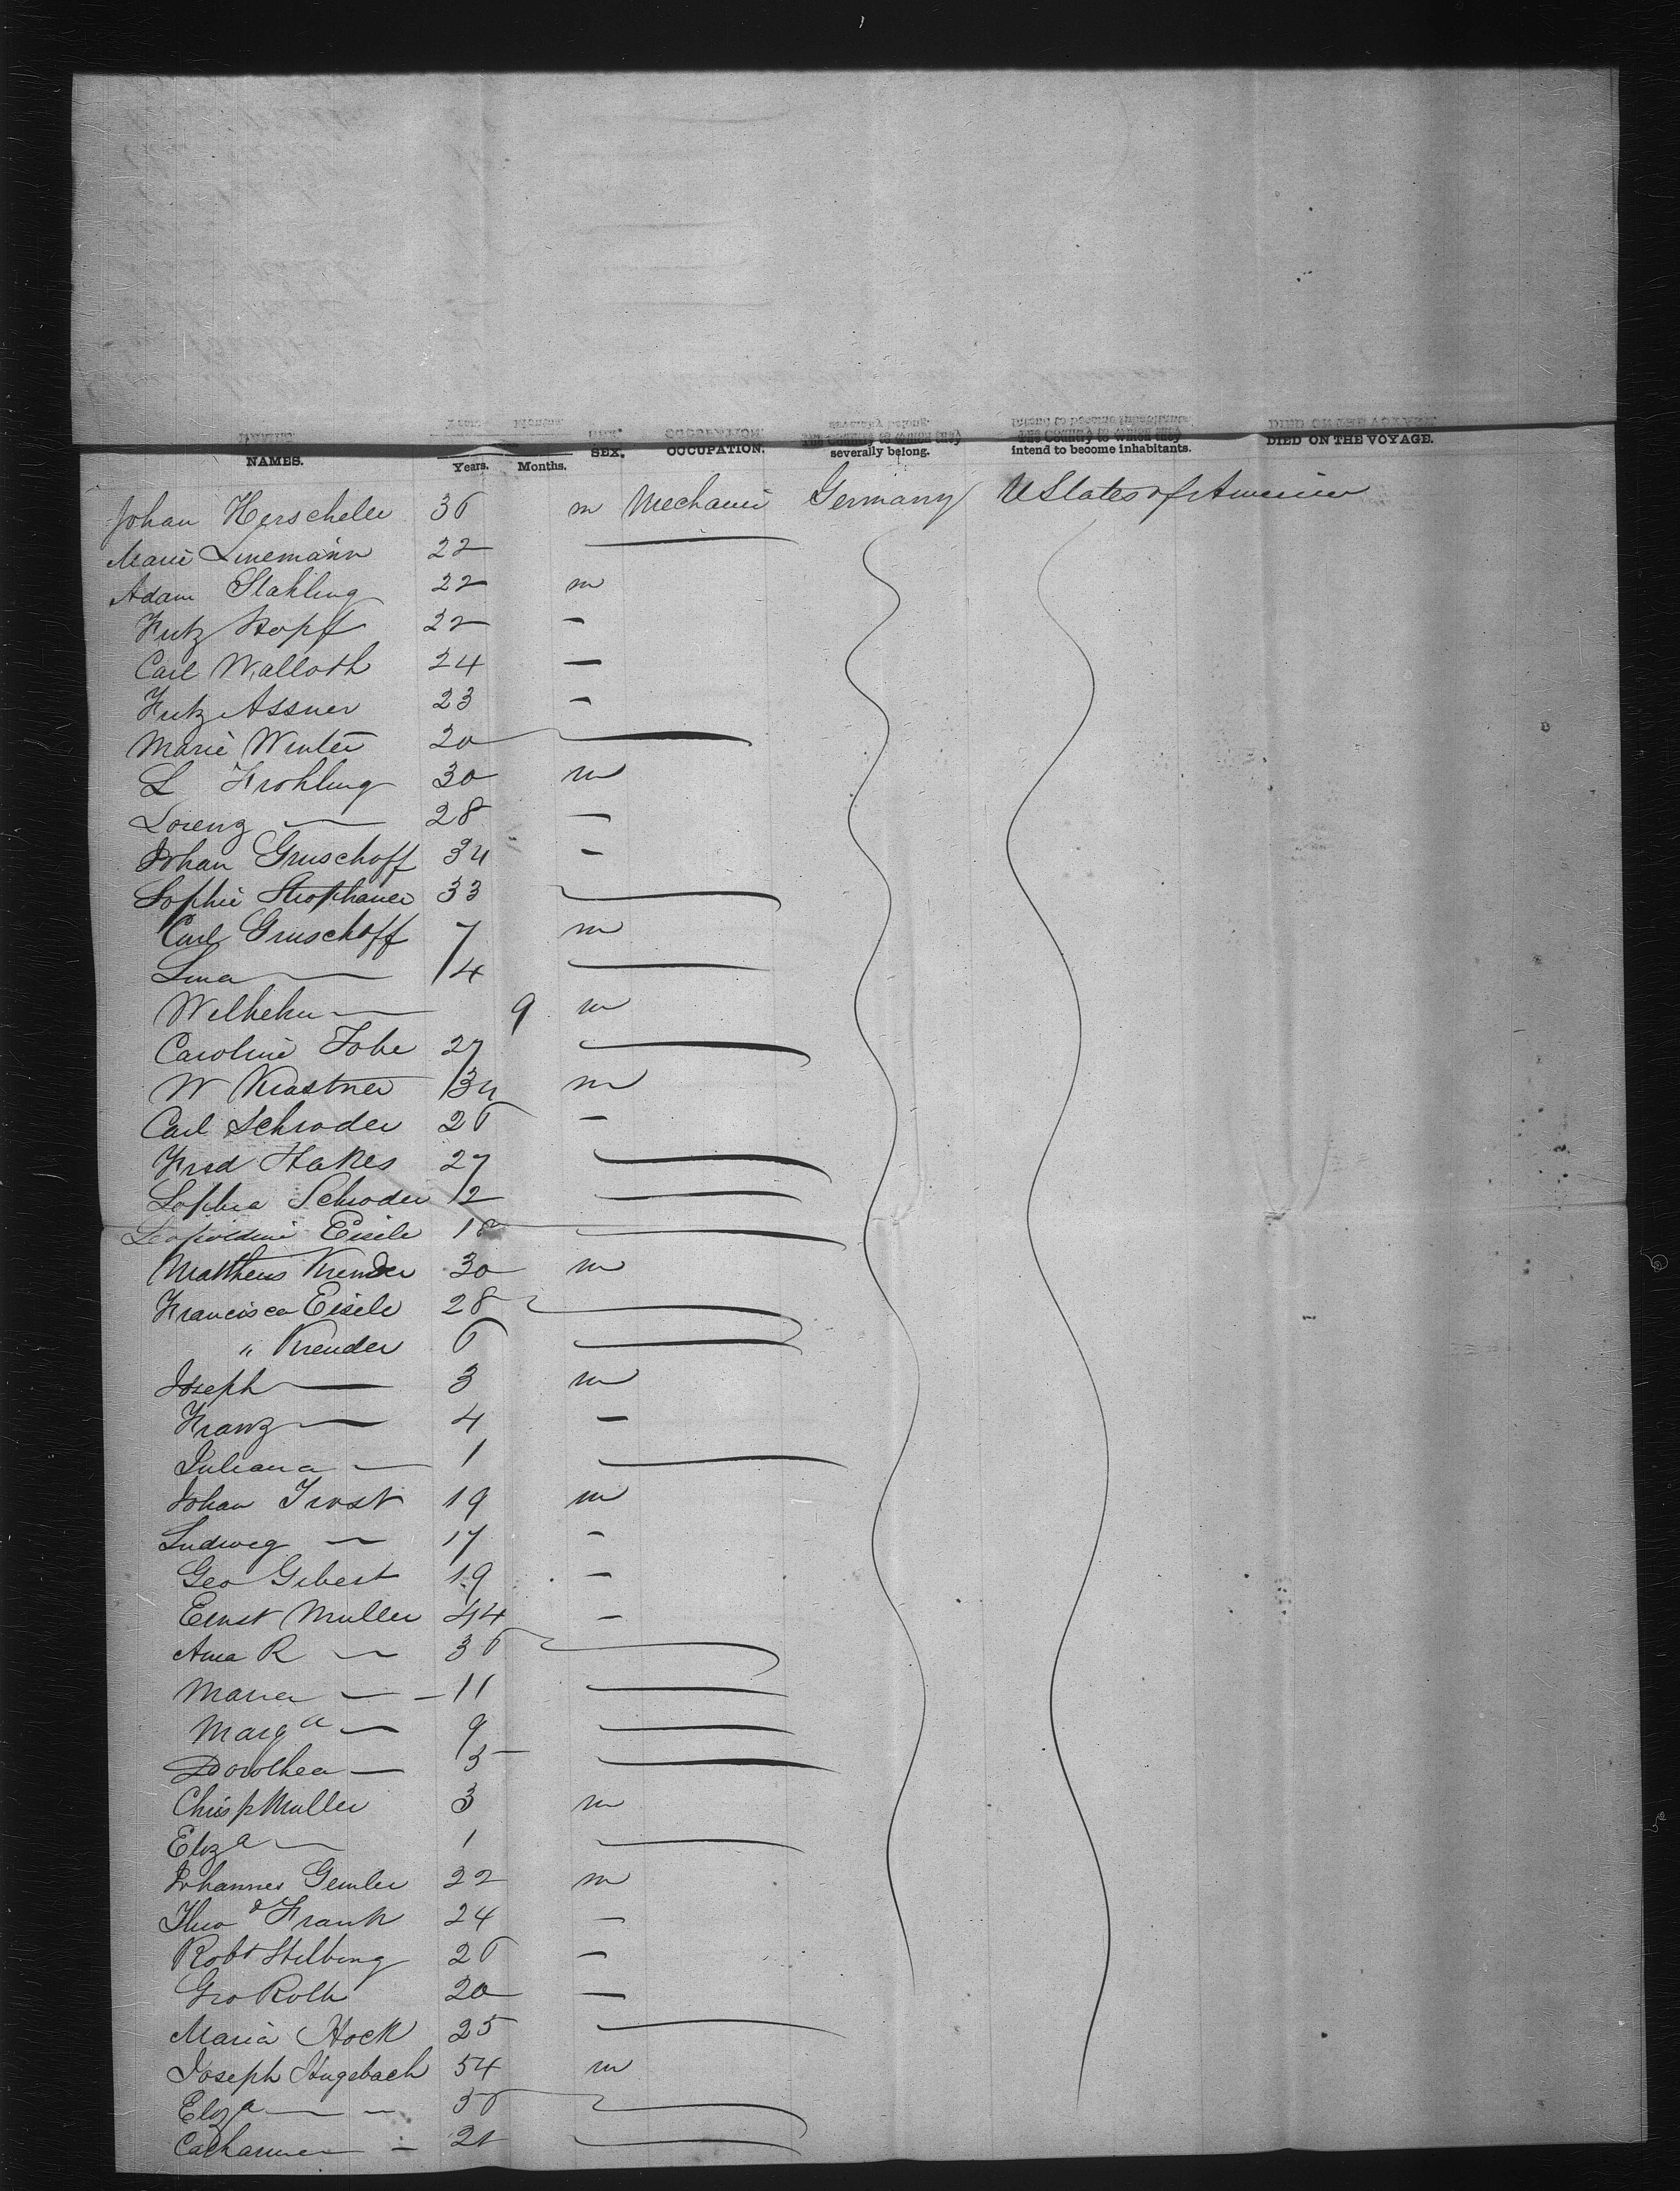 NAMES. Years. Months. SEX. OCCUPATION. The Country to which they severally belong. The Country to which they intend to become inhabitants. DIED ON THE VOYAGE.
Johan Herscheler 36 m Mechanic Germany U States of America
Marie Linemann 22 —
Adam Stahling 22 m
Fritz Hopf 22 —
Carl Walloth 24 —
Fritz Assner 23 —
Marie Winter 20 —
L Frohling 30 m
Lorenz — 28 —
Johan Gruschoff 34 —
Sophie 33 —
Carl Gruschoff 7 m
Lina — 4 —
Wilhelm — 9 m
Caroline Tobe 27 —
W Krastner 34 m
Carl Schroder 26 —
Fred Hakes 27 —
Sophia Schroder 2 —
Leopoldine Eisele 18 —
Mattheus Krender 30 m
Francisca Eisele 28 —
" Krender 6 —
Joseph — 3 m
Franz — 4 —
Juliana — 1 —
Johan Trost 19 m
Ludwig — 17 —
Geo Gibert 19 —
Ernst Muller 44 —
Anna R — 36 —
Maria — 11 —
Marga — 9 —
Dorothea — 5 —
Chrisp Muller 3 m
Eliza — 1 —
Johannes Gemler 22 m
Theod Frank 24 —
Robt Hilbing 26 —
Geo Roth 20 —
Maria Hock 25 —
Joseph Hugebach 54 m
Eliza — 56 —
Catharina — 21 —